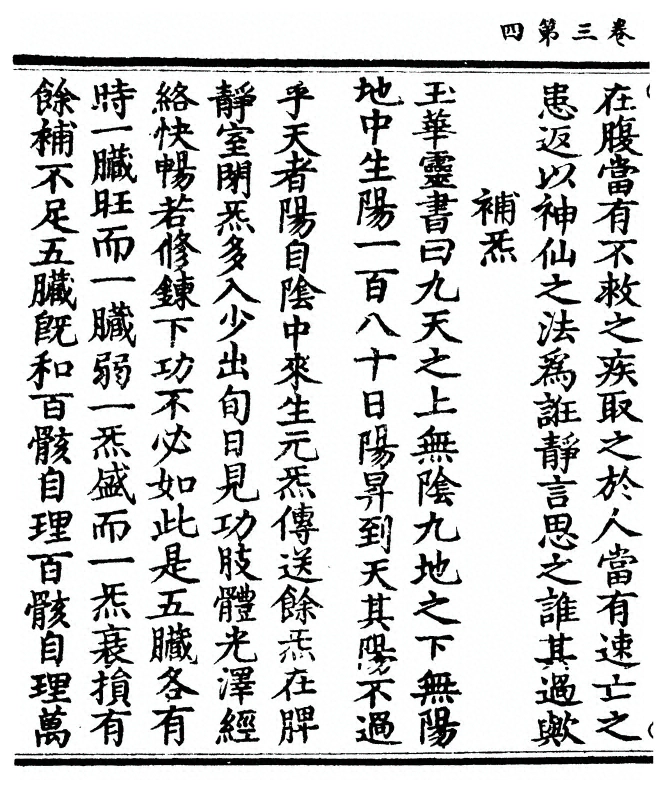 卷三第四
在腹當有不救之疾取之於人當有速亡之
患返以神仙之法爲誑靜言思之誰其過歟
補炁
玉華靈書曰九天之上無陰九地之下無陽
地中生陽一百八十日陽昇到天其陽不過
乎天者陽自陰中來生元炁傳送餘炁在脾
靜室閉炁多入少出旬日見功肢體光澤經
絡快暢若修鍊下功不必如此是五臟各有
時一臟旺而一臟弱一炁盛而一炁衰損有
餘補不足五臟旣和百骸自理百骸自理萬